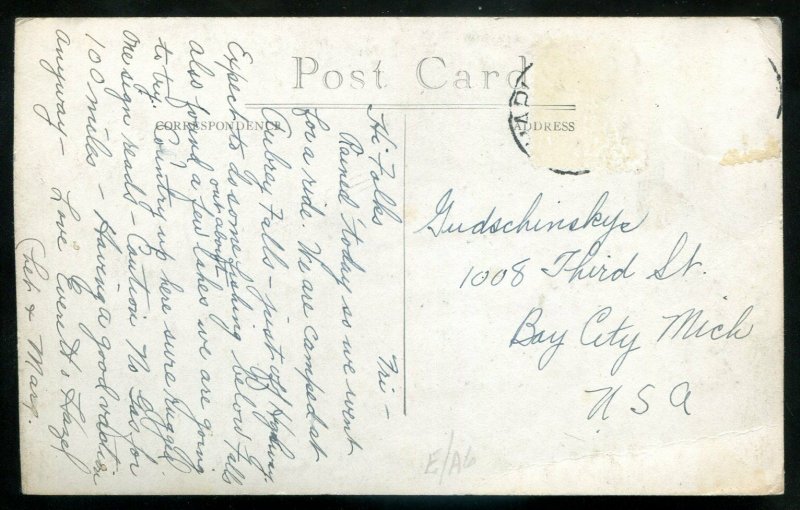 Post Card
CORRESPONDENCE
ADDRESS
Fri –
Hi Folks
Rained today so we went
for a ride. We are camped at
Aubrey Falls – just off Hghwy.
Expect to do some fishing below Falls
also found a few lakes we are going
out about
to try. Country up here sure rugged
One sign reads – Caution No Gas for
100 miles – Having a good vacation
anyway – Love Everett, Hazel
Chet & Marg.
Gudschinskys
1008 Third St.
Bay City Mich
USA
E/A6